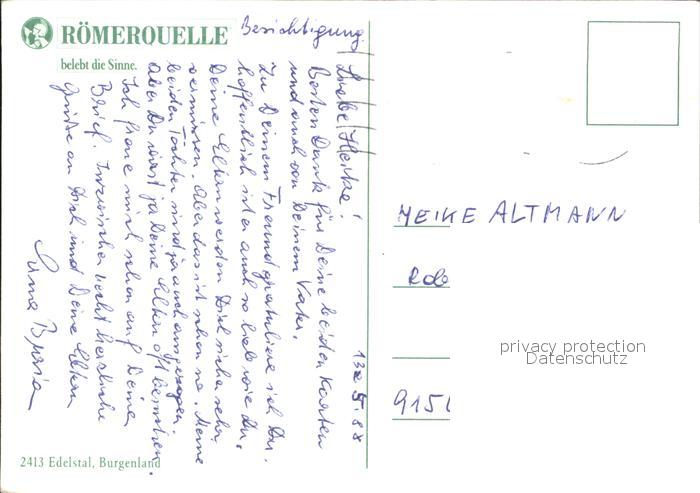 RÖMERQUELLE
belebt die Sinne.
Besichtigung
13. 5. 88
Liebe Heike!
Besten Dank für Deine beiden Karten
und auch von Deinem Vater.
Zu Deinem Freund gratuliere ich Dir.
hoffentlich ist er auch so lieb wie Du.
Deine Eltern werden Dich sicher sehr
vermissen. Aber das ist schon so. Meine
beiden Töchter sind ja auch ausgezogen.
Aber Du wirst ja Deine Eltern oft besuchen.
Ich freue mich schon auf Deinen
Brief. Inzwischen recht herzliche
Grüße an Dich und Deine Eltern
HEIKE ALTMANN
Rob
9151
privacy protection
Datenschutz
2413 Edelstal, Burgenland